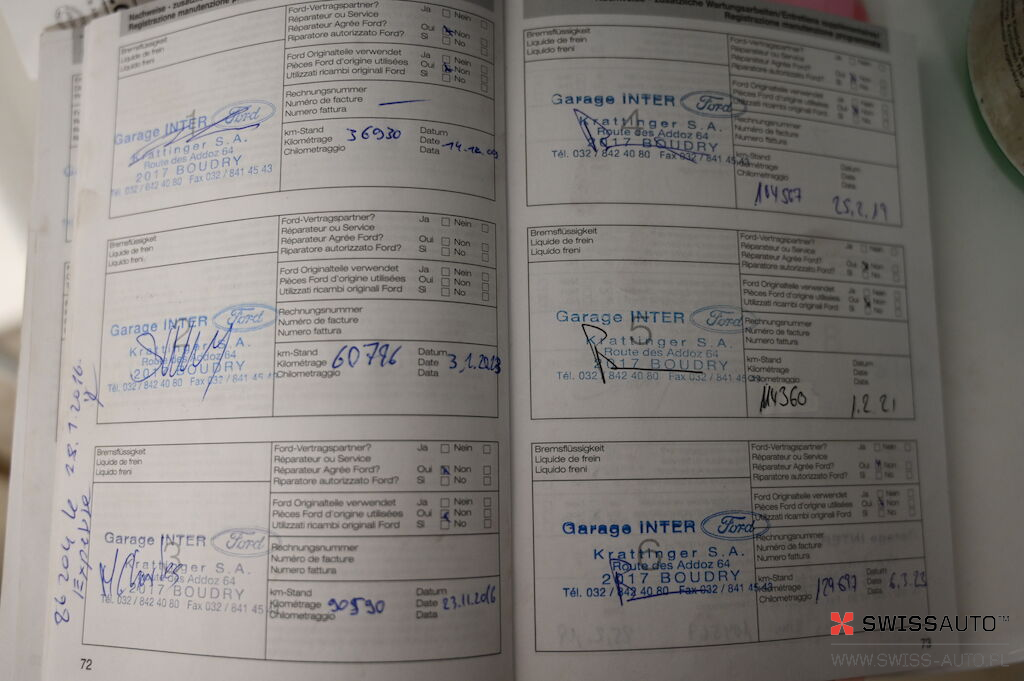 Nachweise - zusätzliche
Registrazione manutenzione
Bremsflüssigkeit
Liquide de frein
Liquido freni
Ford-Vertragspartner? Ja Nein
Réparateur ou Service
Réparateur Agrée Ford? Oui Non
Riparatore autorizzato Ford? Si No
Ford Originalteile verwendet Ja Nein
Pièces Ford d'origine utilisées Oui Non
Utilizzati ricambi originali Ford Si No
Rechnungsnummer
Numéro de facture
Numero fattura
Garage INTER Ford
Krattinger S.A.
Route des Addoz 64
2017 BOUDRY
Tél. 032 / 842 40 80 Fax 032 / 841 45 43
km-Stand
Kilométrage 36930
Chilometraggio
Datum
Date
Data
Bremsflüssigkeit
Liquide de frein
Liquido freni
Ford-Vertragspartner? Ja Nein
Réparateur ou Service
Réparateur Agrée Ford? Oui Non
Riparatore autorizzato Ford? Si No
Ford Originalteile verwendet Ja Nein
Pièces Ford d'origine utilisées Oui Non
Utilizzati ricambi originali Ford Si No
Rechnungsnummer
Numéro de facture
Numero fattura
Garage INTER Ford
Krattinger S.A.
Route des Addoz 64
2017 BOUDRY
Tél. 032 / 842 40 80 Fax 032 / 841 45
km-Stand
Kilométrage 60796
Chilometraggio
Datum
Date 3.1.2013
Data
Bremsflüssigkeit
Liquide de frein
Liquido freni
Ford-Vertragspartner? Ja Nein
Réparateur ou Service
Réparateur Agrée Ford? Oui Non
Riparatore autorizzato Ford? Si No
Ford Originalteile verwendet Ja Nein
Pièces Ford d'origine utilisées Oui Non
Utilizzati ricambi originali Ford Si No
Rechnungsnummer
Numéro de facture
Numero fattura
Garage INTER Ford
Krattinger S.A.
Route des Addoz 64
2017 BOUDRY
Tél. 032 / 842 40 80 Fax 032 / 841 45
km-Stand
Kilométrage 90590
Chilometraggio
Datum
Date 23.11.2016
Data
86 204 le 28.1.2016
72
Nachweise - zusätzliche Wartungsarbeiten/Entretiens
Registrazione manutenzione programmata
Bremsflüssigkeit
Liquide de frein
Liquido freni
Ford-Vertragspartner? Ja Nein
Réparateur ou Service
Réparateur Agrée Ford? Oui Non
Riparatore autorizzato Ford? Si No
Ford Originalteile verwendet Ja Nein
Pièces Ford d'origine utilisées Oui Non
Utilizzati ricambi originali Ford Si No
Rechnungsnummer
Numéro de facture
Numero fattura
4
Garage INTER Ford
Krattinger S.A.
Route des Addoz 64
2017 BOUDRY
Tél. 032 / 842 40 80 Fax 032 / 841 45 43
km-Stand
Kilométrage
Chilometraggio
Datum
Date
Data
25.2.19
Bremsflüssigkeit
Liquide de frein
Liquido freni
Ford-Vertragspartner? Ja Nein
Réparateur ou Service
Réparateur Agrée Ford? Oui Non
Riparatore autorizzato Ford? Si No
Ford Originalteile verwendet Ja Nein
Pièces Ford d'origine utilisées Oui Non
Utilizzati ricambi originali Ford Si No
Rechnungsnummer
Numéro de facture
Numero fattura
5
Garage INTER Ford
Krattinger S.A.
Route des Addoz 64
2017 BOUDRY
Tél. 032 / 842 40 80 Fax 032 / 841 45 43
km-Stand
Kilométrage
Chilometraggio
Datum
Date
Data
114360 1.2.21
Bremsflüssigkeit
Liquide de frein
Liquido freni
Ford-Vertragspartner? Ja Nein
Réparateur ou Service
Réparateur Agrée Ford? Oui Non
Riparatore autorizzato Ford? Si No
Ford Originalteile verwendet Ja Nein
Pièces Ford d'origine utilisées Oui Non
Utilizzati ricambi originali Ford Si No
Rechnungsnummer
Numéro de facture
Numero fattura
6
Garage INTER Ford
Krattinger S.A.
Route des Addoz 64
2017 BOUDRY
Tél. 032 / 842 40 80 Fax 032 / 841 45 43
km-Stand
Kilométrage
Chilometraggio
Datum
Date 6.3.23
Data
73
SWISSAUTO™
WWW.SWISS-AUTO.PL